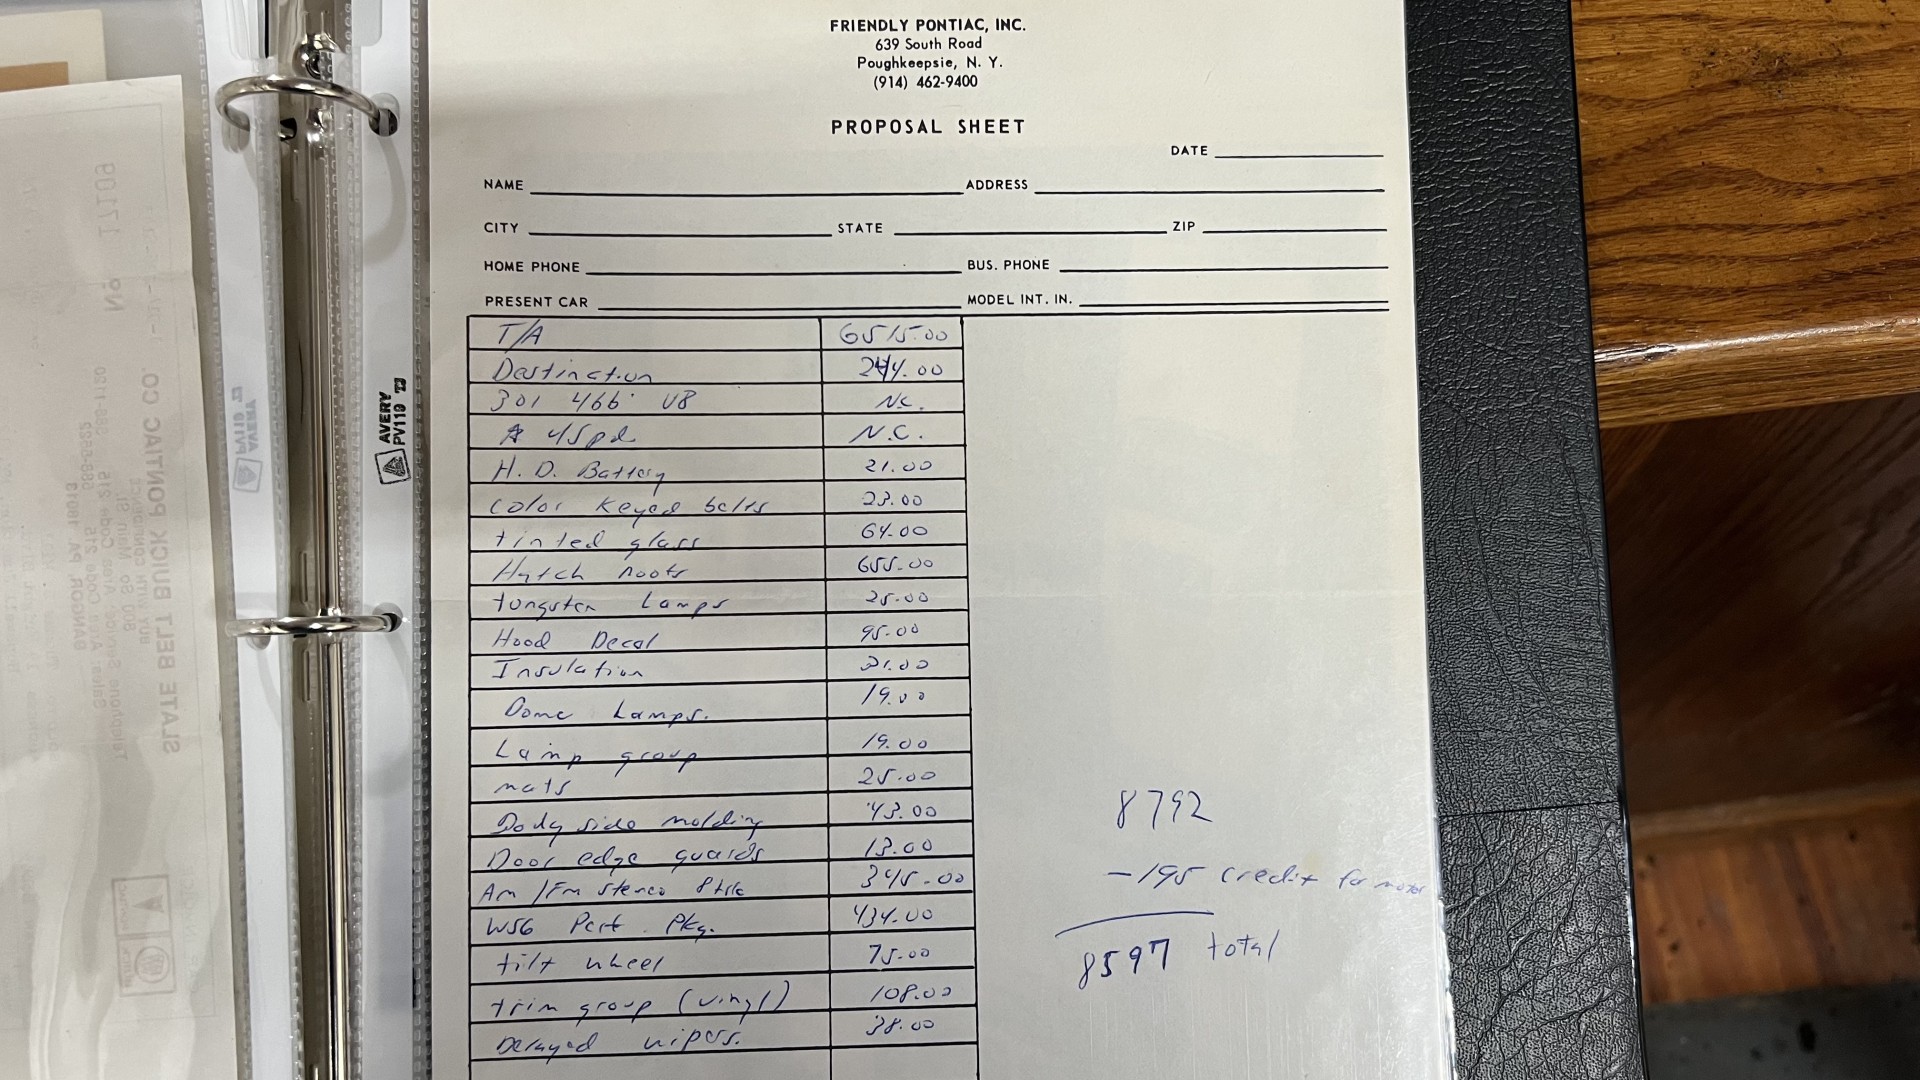 FRIENDLY PONTIAC, INC.
639 South Road
Poughkeepsie, N. Y.
(914) 462-9400
PROPOSAL SHEET
DATE
NAME ADDRESS
CITY STATE ZIP
HOME PHONE BUS. PHONE
PRESENT CAR MODEL INT. IN.
T/A 6515.00
Destination 244.00
301 4bb V8 N.C.
4 Spd N.C.
H. D. Battery 21.00
color keyed belts 23.00
tinted glass 64.00
Hatch roofs 655.00
tungsten Lamps 25.00
Hood Decal 95.00
Insulation 31.00
Dome Lamps. 19.00
Lamp group 19.00
mats 25.00
Body side molding 43.00
Door edge guards 13.00
Am/Fm stereo 8trk 345.00
WS6 Perf. Pkg. 434.00
tilt wheel 75.00
trim group (vinyl) 108.00
Delayed wipers. 38.00
8792
-195 credit for motor
8597 total
AVERY
PV119
SLATE BELT BUICK PONTIAC CO.
BUY WITH CONFIDENCE
500 So. Main St.
BANGOR, PA. 18013
No 17109